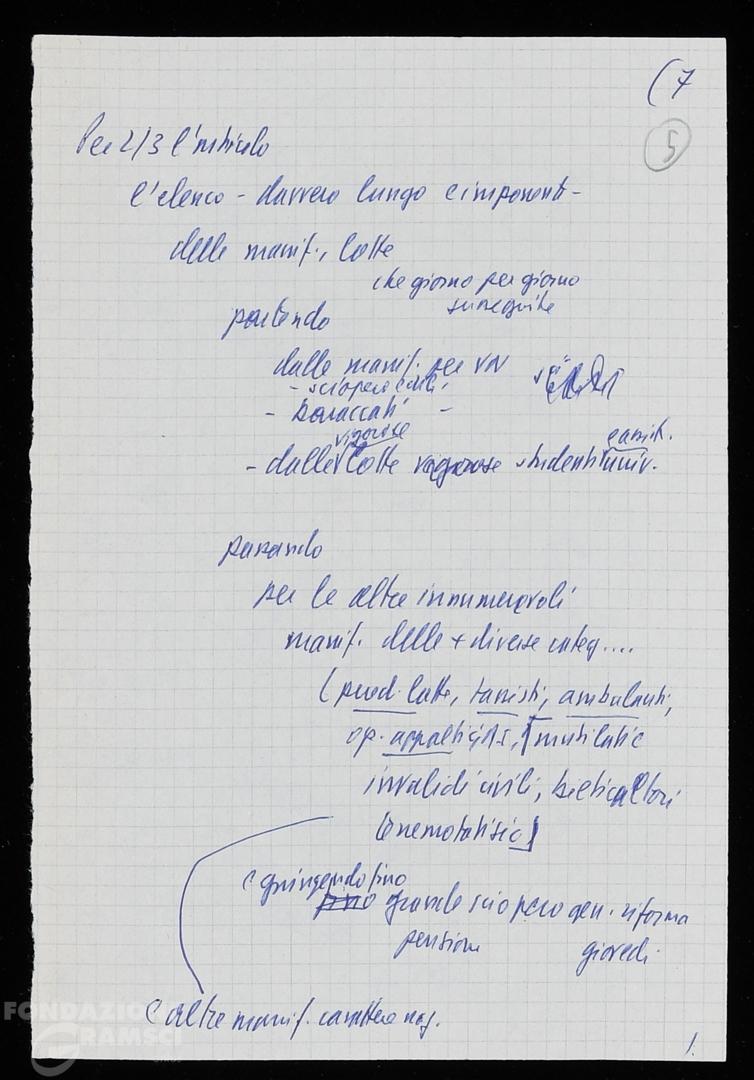 (7
5
Per 2/3 l'articolo
l'elenco - davvero lungo e imponente -
delle manif., lotte
che giorno per giorno
susseguite
partendo
dalle manif. per VN
- scioperi edili,
- braccianti -
vigorose
- dalle lotte vigorose studenti univ.
passando
per le altre innumerevoli
manif. delle + diverse categ....
(prod. latte, tassisti, ambulanti,
op. appaltisti, [mutilati e
invalidi civili, bieticoltori
e giungendo fino
fino grande sciopero gen. riforma
pensioni giovedì.
e altre manif. carattere naz.
1.
FONDAZIONE
GRAMSCI